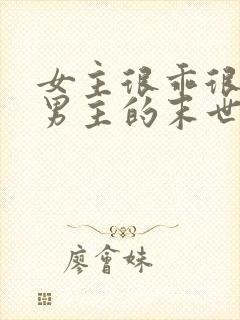 女主很乖很
男主的末世
廖會妹